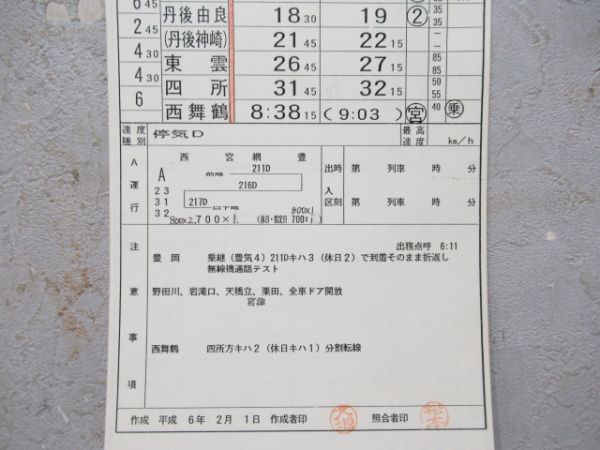 6 45
丹後由良 18 30 19 ② 35 35
2 45
(丹後神崎) 21 45 22 15 — —
4 30
東雲 26 45 27 15 85 85
4 30
四所 31 45 32 15 50 55
6
西舞鶴 8:38 15 (9:03) 宮 40 乗
速度種別 停気D 最高速度 km/h
西 宮 網 豊
A 運行
A 23 31 32
211D
216D
217D
800×2,700×1.
800×1
(休日・指定日 700×1)
出時 第 列車 時 分
入
区刻 第 列車 時 分
注意事項
出務点呼 6:11
豊岡 乗継(豊気4)211Dキハ3(休日2)で到着そのまま折返し
無線機通話テスト
野田川、岩滝口、天橋立、栗田、全車ドア開放
宮津
西舞鶴 四所方キハ2(休日キハ1)分割転線
作成 平成 6年 2月 1日 作成者印 照合者印